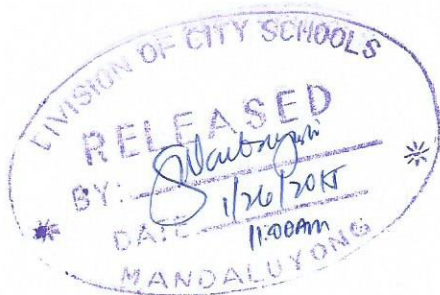 DIVISION OF CITY SCHOOLS
RELEASED
BY:
DATE 1/26/2015
11:00AM
MANDALUYONG